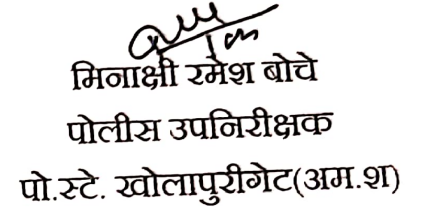 मिनाक्षी रमेश बोचे
पोलीस उपनिरीक्षक
पो.स्टे. खोलापुरीगेट(अम.श)